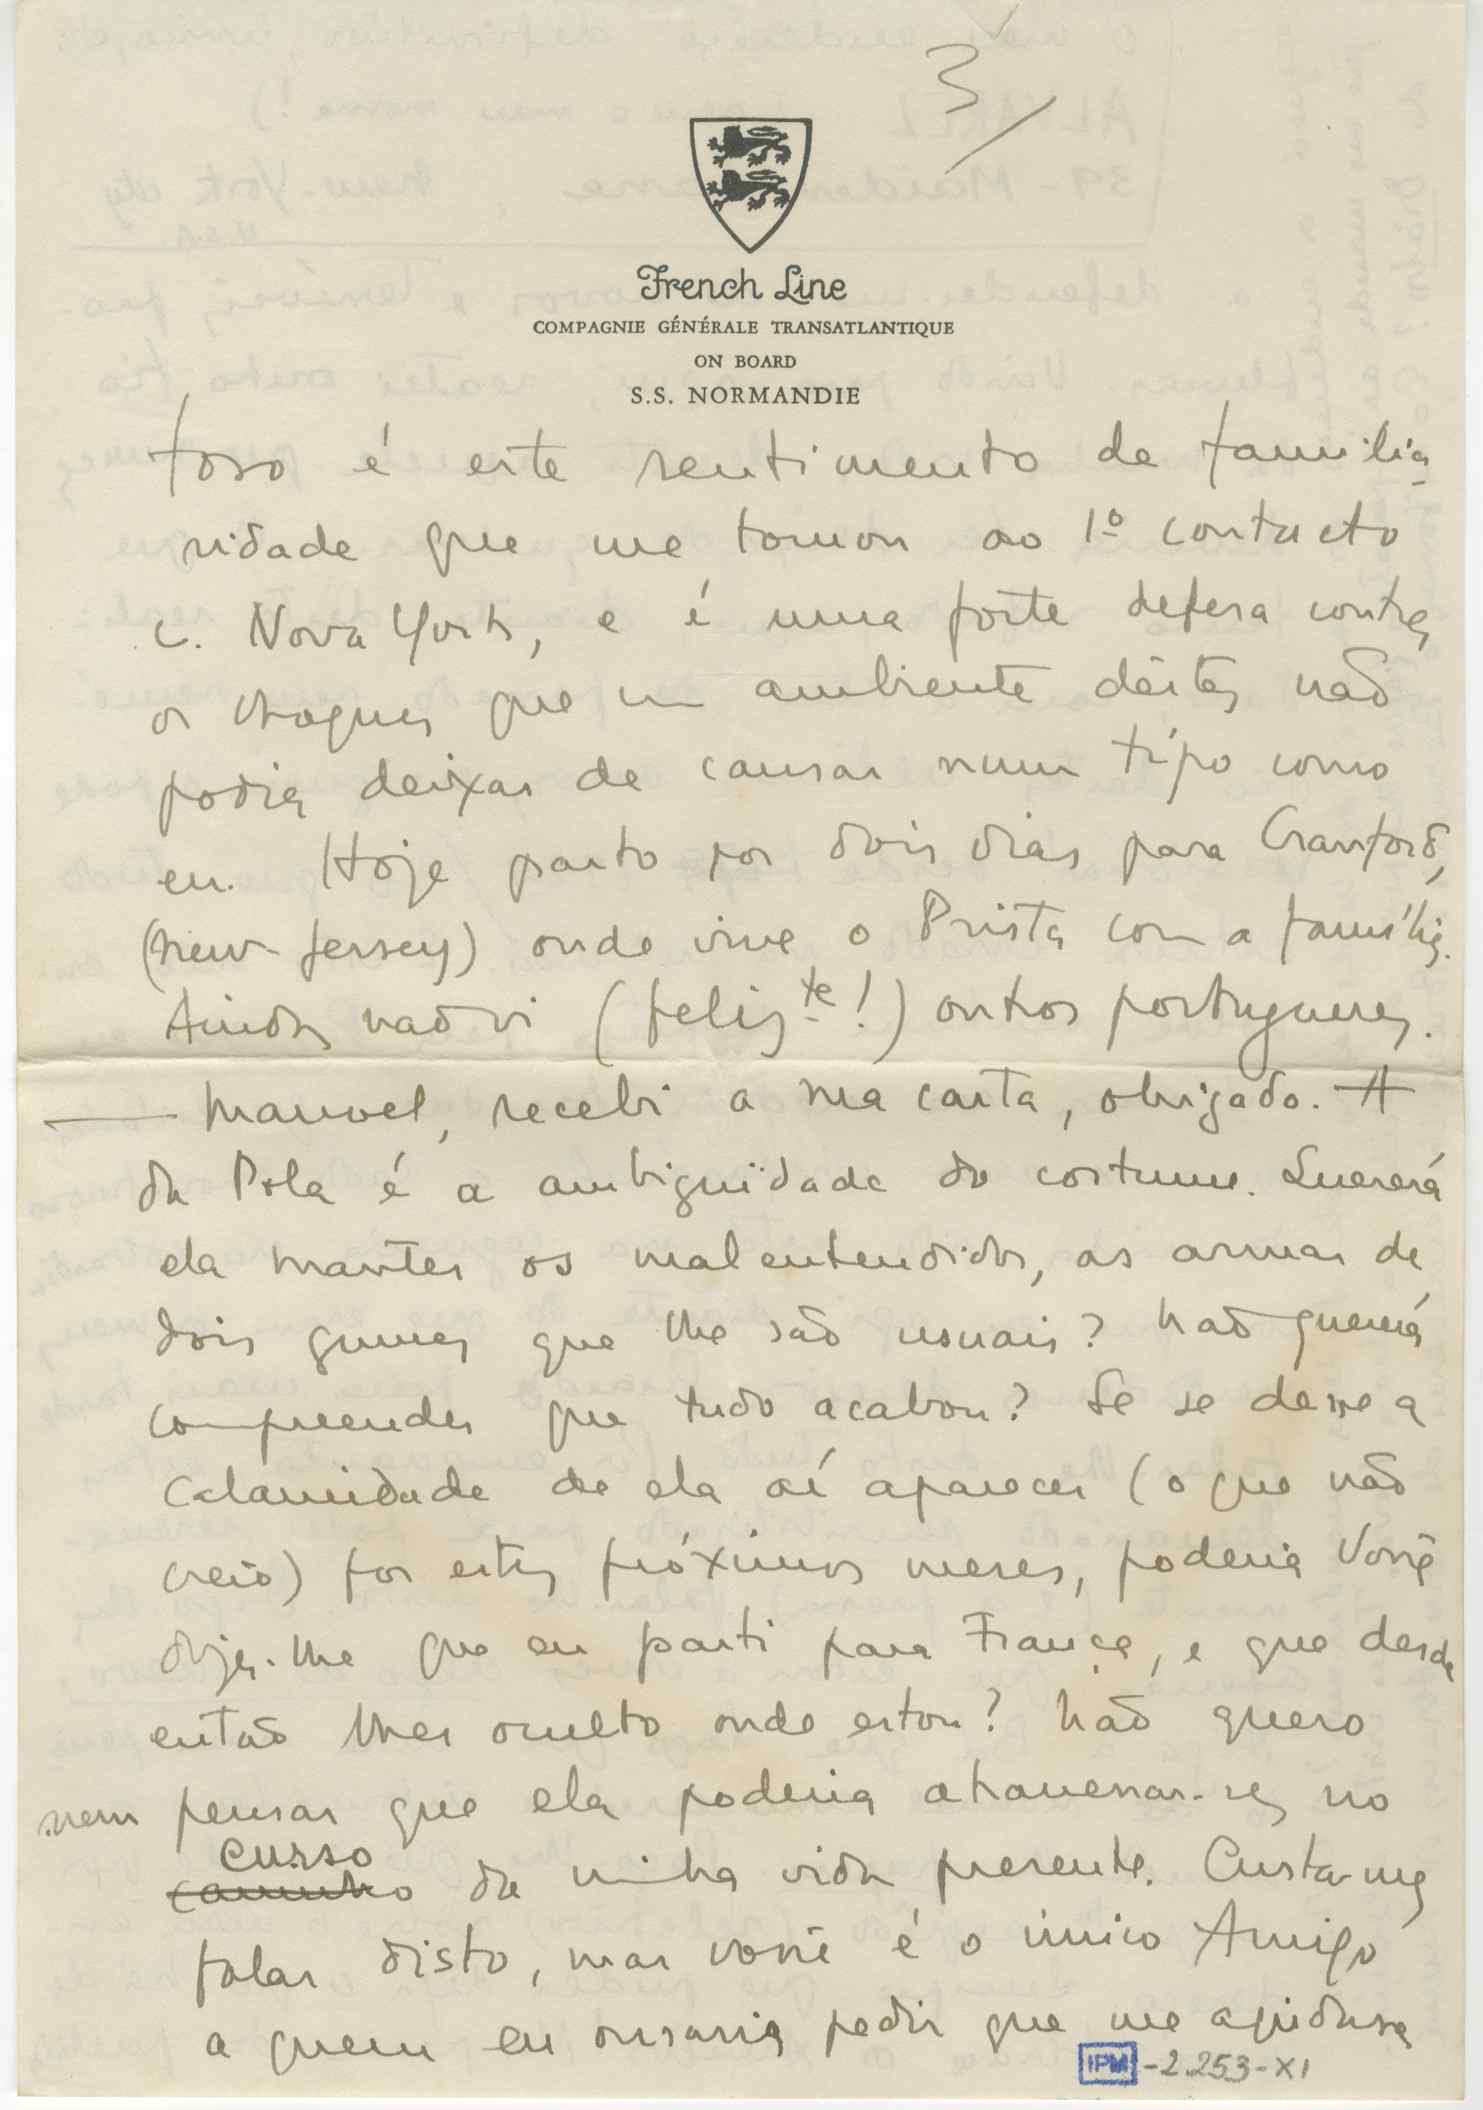 3/
French Line
COMPAGNIE GÉNÉRALE TRANSATLANTIQUE
ON BOARD
S.S. NORMANDIE
toso é este sentimento de familia-
ridade que me tomou ao 1º contacto
c. Nova York, e é uma forte defesa contra
os choques que um ambiente dêstes não
podia deixar de causar num tipo como
eu. Hoje parto por dois dias para Cranford,
(New-Jersey) onde vive o Prista com a família.
Ainda não vi (felizte!) outros portugueses.
— Manuel, recebi a sua carta, obrigado. A
da Pola é a ambigüidade do costume. Quererá
ela manter os malentendidos, as armas de
dois gumes que lhe são usuais? Não quererá
compreender que tudo acabou? Se se desse a
calamidade de ela aí aparecer (o que não
creio) por estes próximos meses, poderia Você
dizer-lhe que eu parti para França, e que desde
então lhes oculto onde estou? Não quero
nem pensar que ela poderia atravessar-se no
curso
caminho da minha vida presente. Custa-me
falar disto, mas você é o único Amigo
a quem eu ousaria pedir que me ajudasse
IPM -2.253-XI